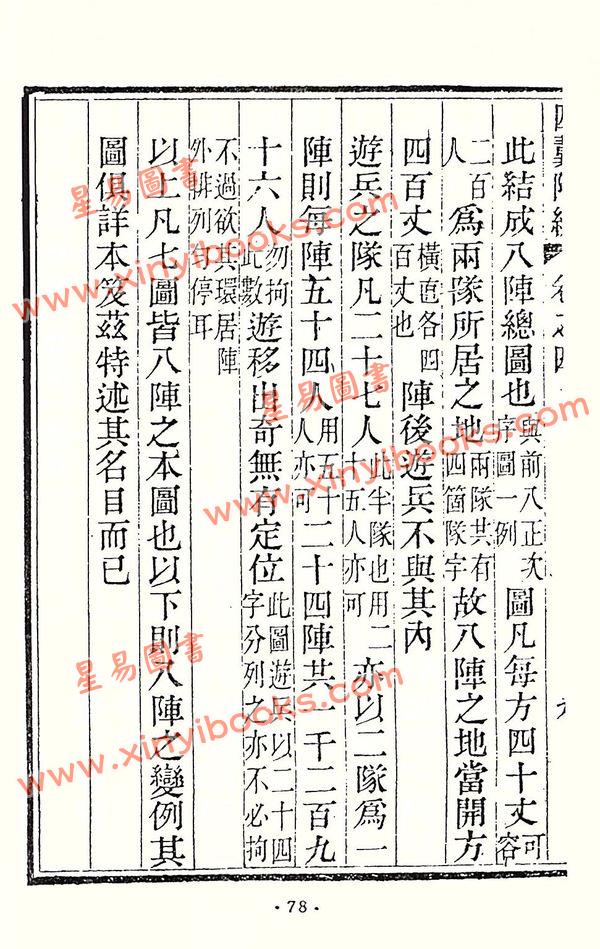 卷之四
此結成八陣總圖也與前八正次字圖一例圖凡每方四十丈可容
二百人爲兩隊所居之地兩隊共有四箇隊字故八陣之地當開方
四百丈橫直各四百丈也陣後遊兵不與其內
遊兵之隊凡二十七人此半隊也用二十五人亦可亦以二隊爲一
陣則每陣五十四人用五十人亦可二十四陣共一千二百九
十六人勿拘此數遊移出奇無有定位此圖遊兵以二十四字分列之亦不必拘
不過欲其環居陣外排列勻停耳
以上凡七圖皆八陣之本圖也以下則八陣之變例其
圖俱詳本笈茲特述其名目而已
·78·
星易圖書
www.xinyibooks.com
星易圖書
www.xinyibooks.com
星易圖書
www.xinyibooks.com
星易圖書
www.xinyibooks.com